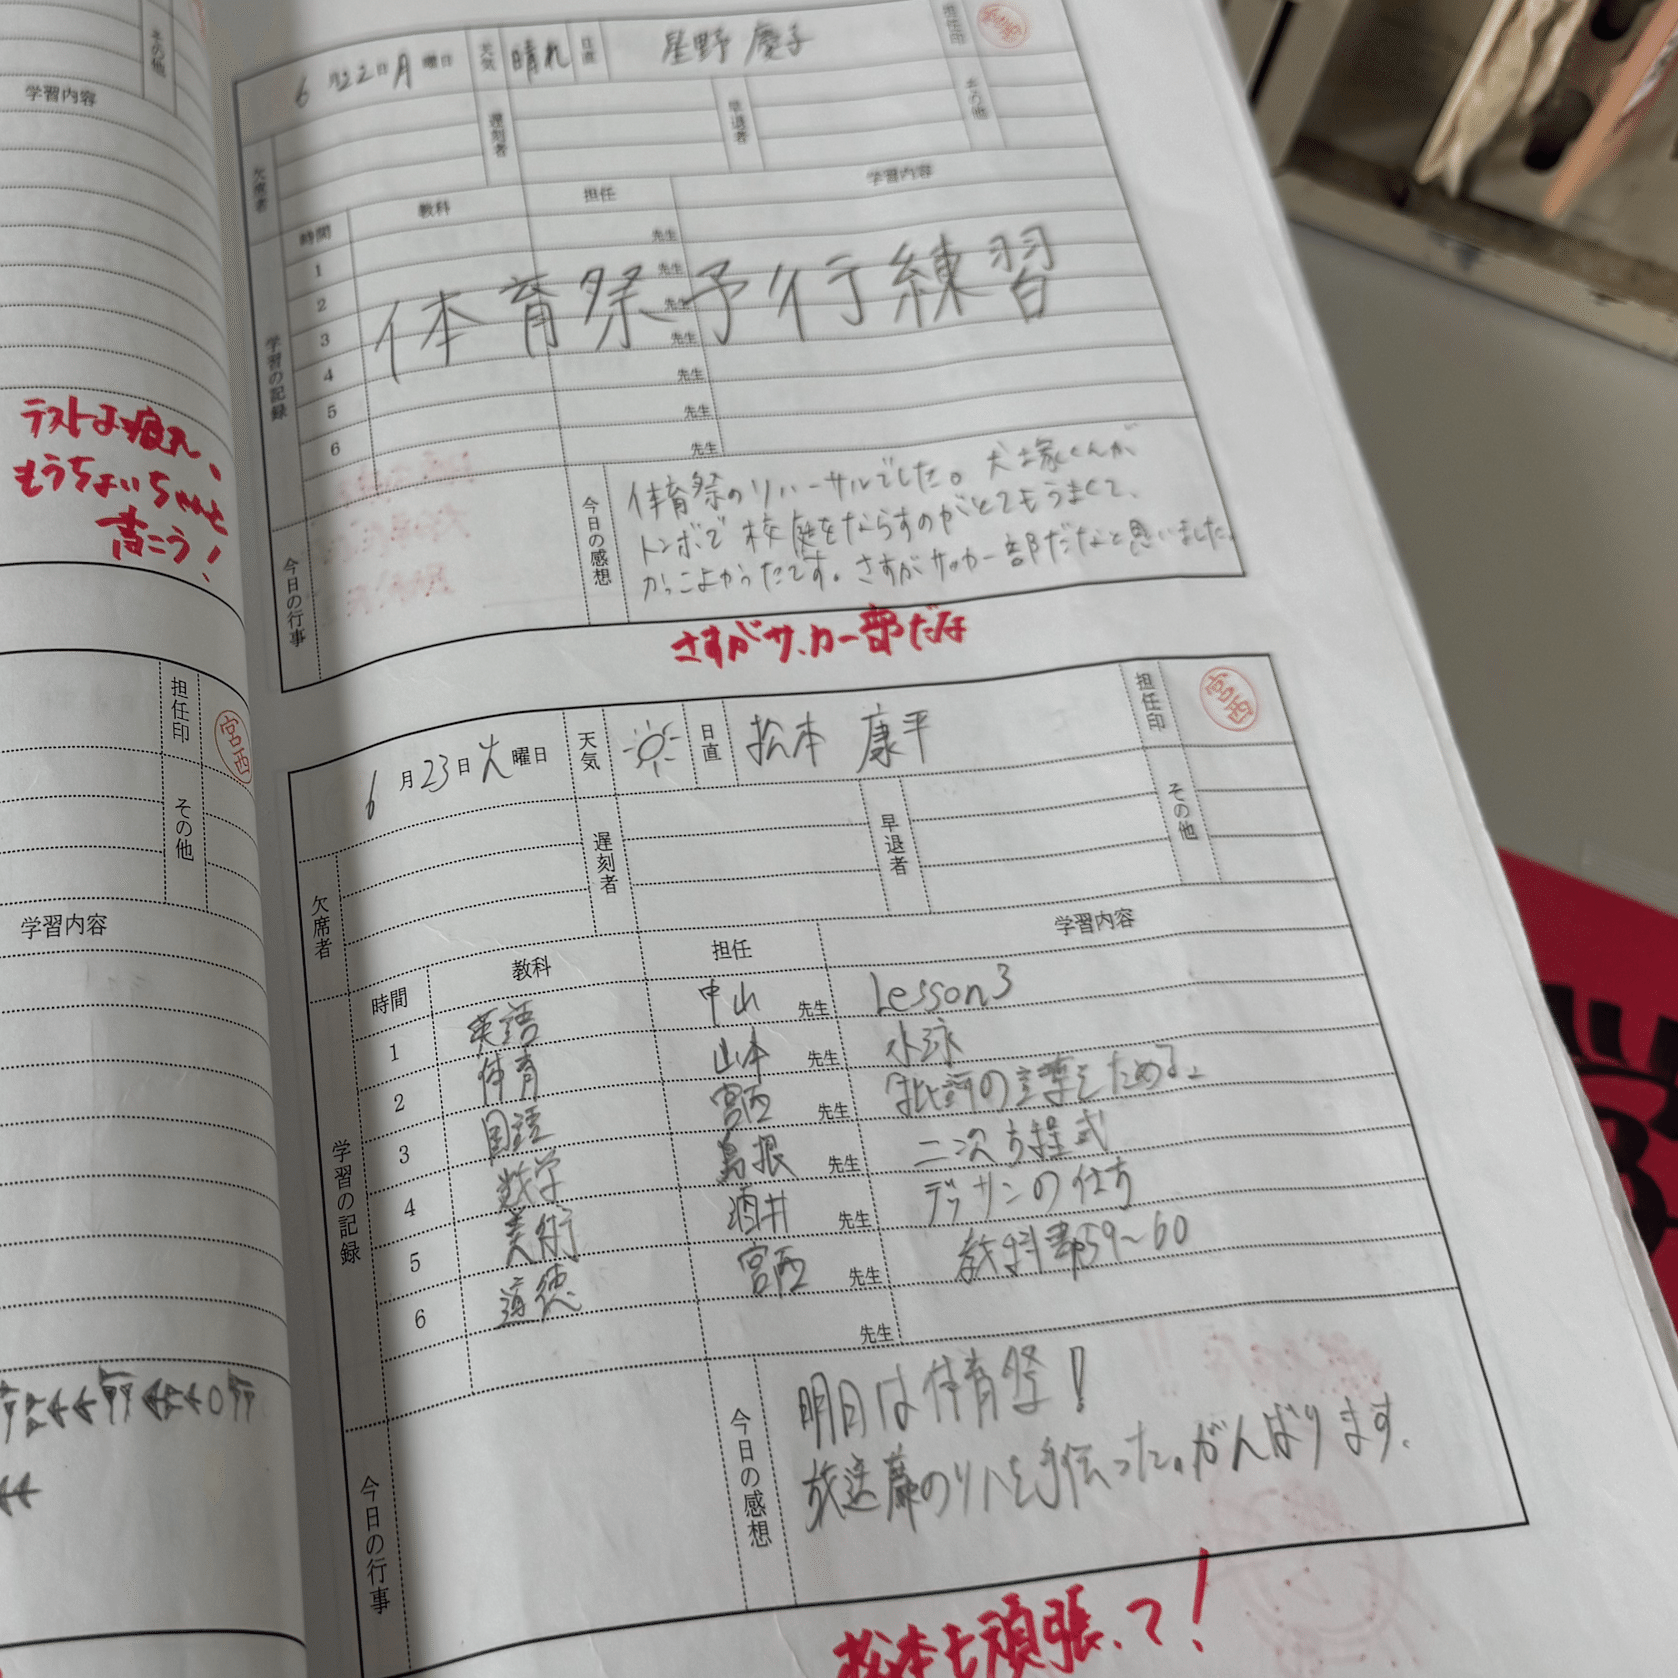 その他
学習内容
テストお疲れ、
もうちょいちゃんと
書こう！
担任印
宮西
その他
学習内容
6月22日月曜日
天気
晴れ
日直
星野 慶子
担任印
欠席者
遅刻者
早退者
その他
時間
教科
担任
学習内容
学習の記録
1 先生
2 先生
3 先生
4 先生
5 先生
6 先生
先生
体育祭予行練習
今日の行事
今日の感想
体育祭のリハーサルでした。犬塚くんが
トンボで校庭をならすのがとてもうまくて、
かっこよかったです。さすがサッカー部だなと思いました。
さすがサッカー部だな
6月23日火曜日
天気
日直
松本 康平
担任印
宮西
欠席者
遅刻者
早退者
その他
時間
教科
担任
学習内容
学習の記録
1 英語 中山先生 Lesson3
2 体育 山本先生 水泳
3 国語 宮西先生 批評の言葉をためる。
4 数学 島根先生 二次方程式
5 美術 酒井先生 デッサンの仕方
6 道徳 宮西先生 教科書P59~60
先生
今日の行事
今日の感想
明日は体育祭！
放送席のリハを手伝った。がんばります。
松本も頑張って！